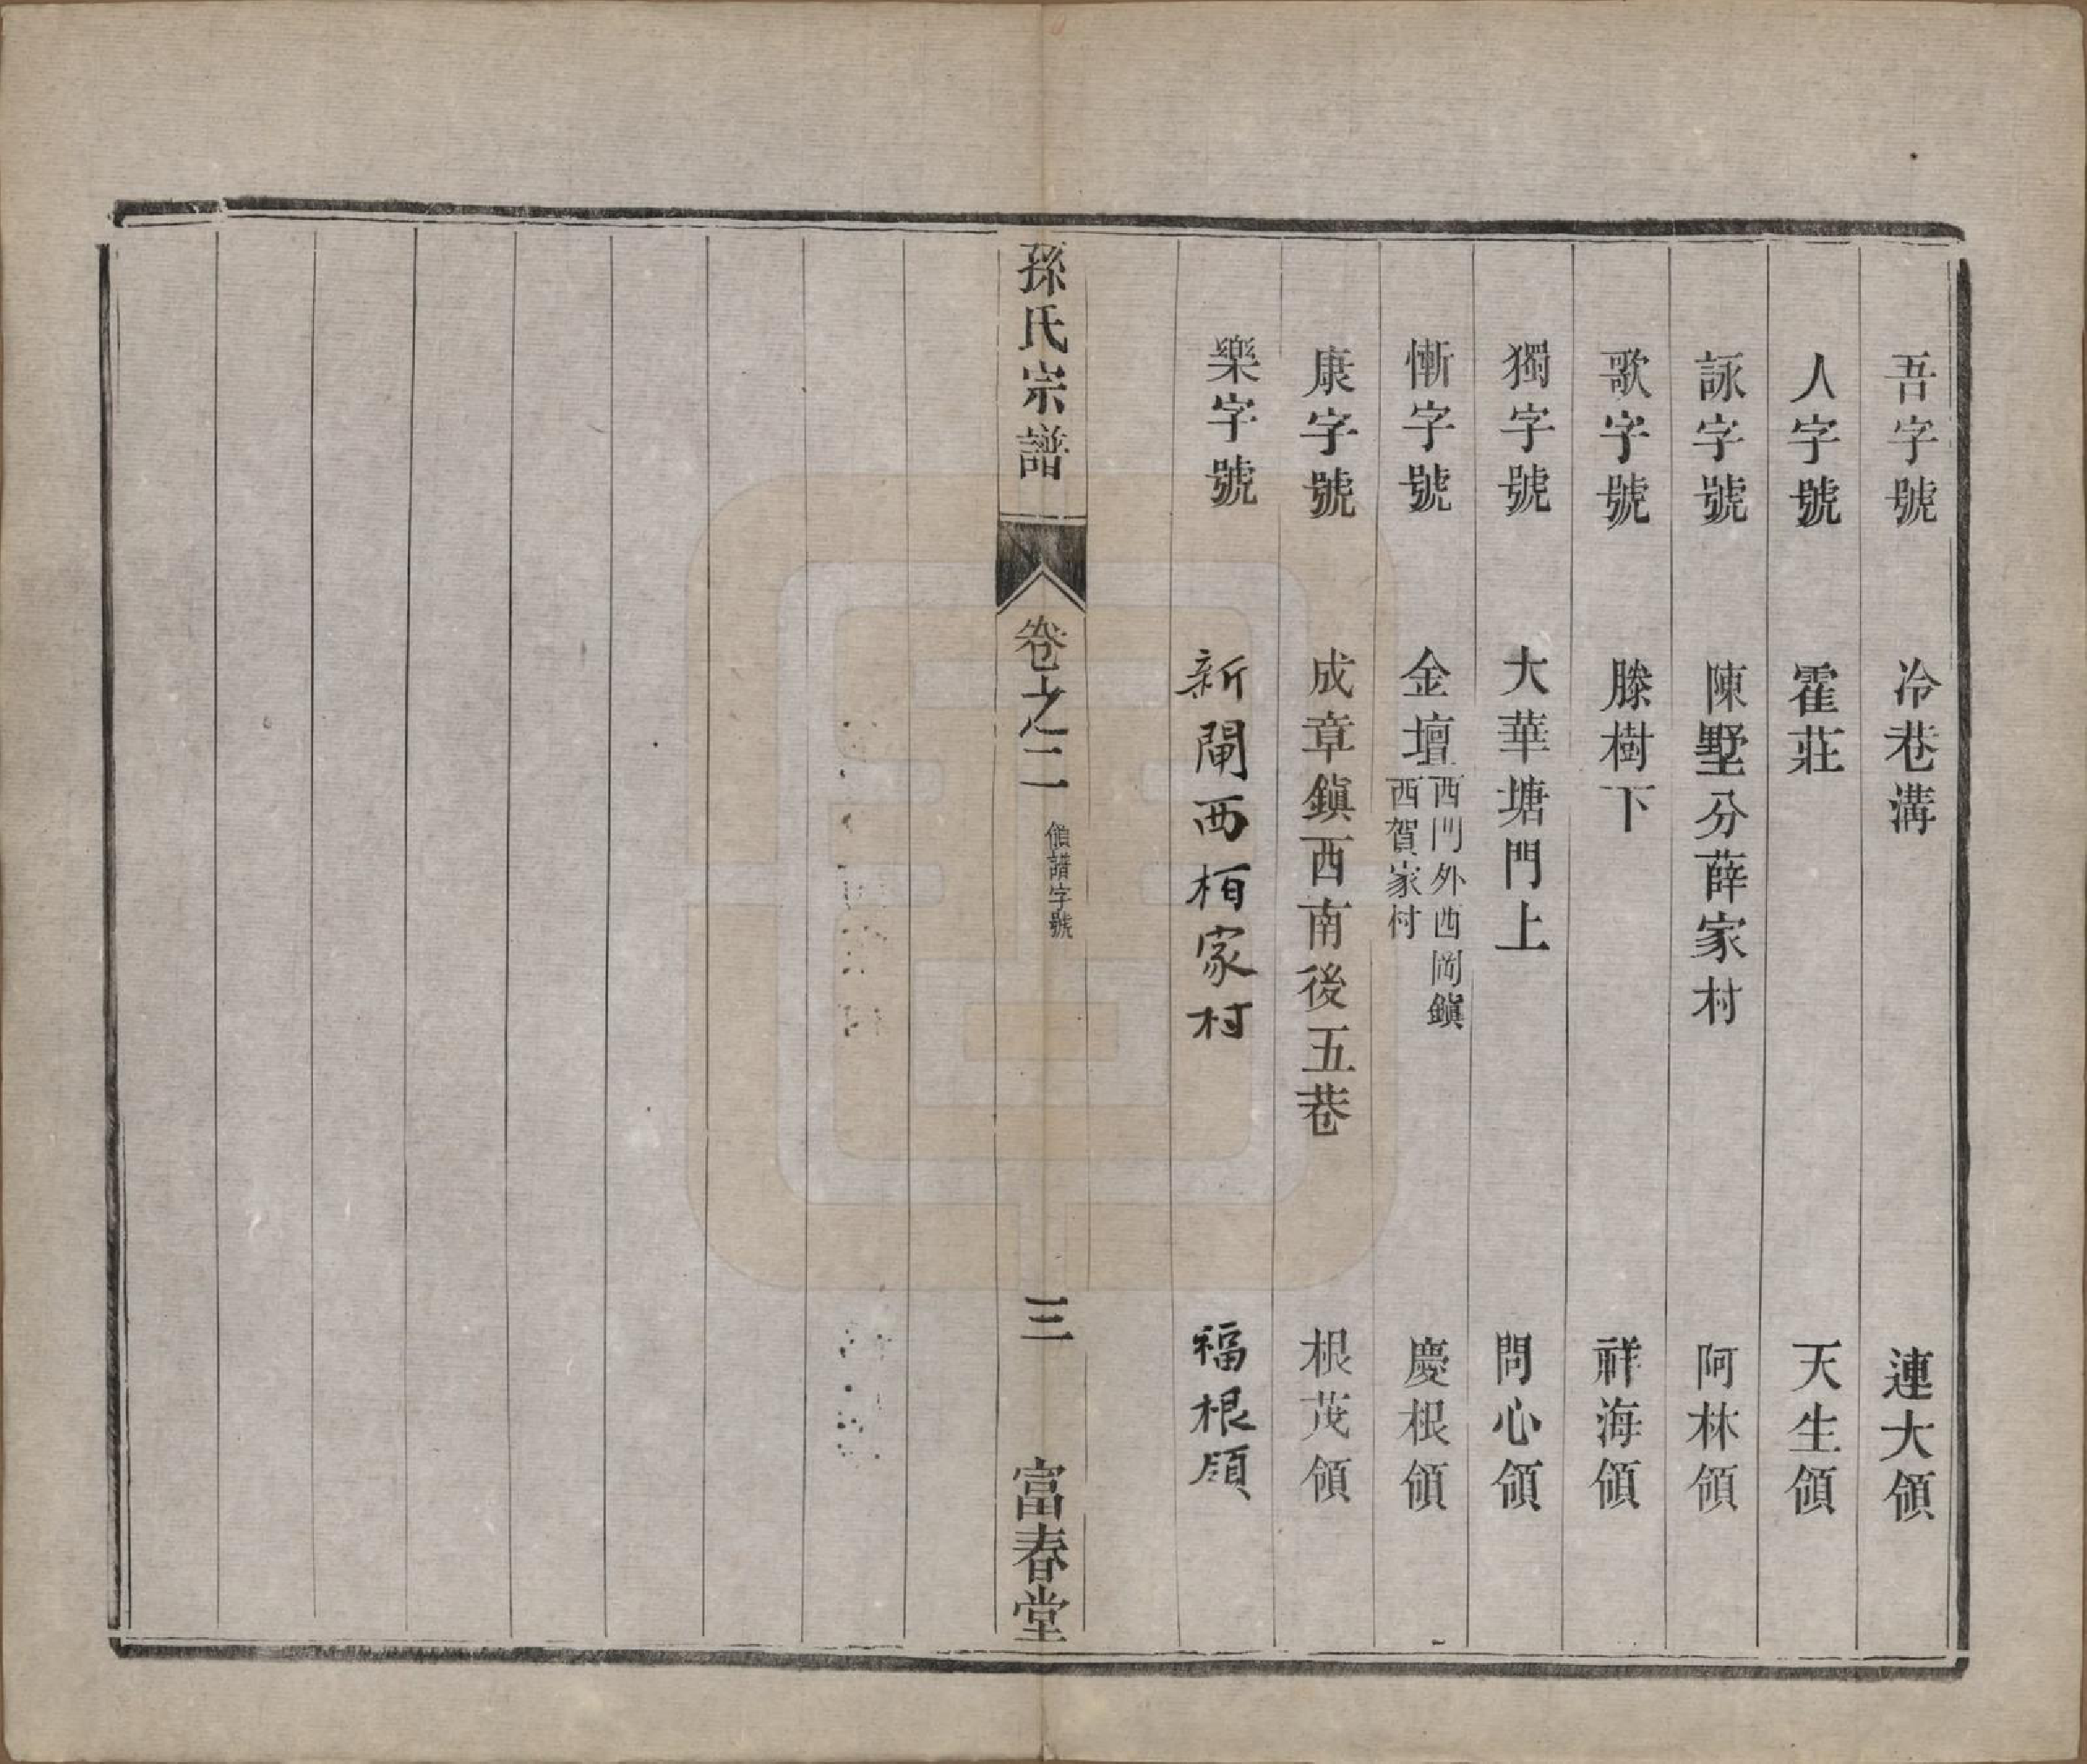 吾字號　冷巷溝　連大領
人字號　霍莊　天生領
詠字號　陳墅分薛家村　阿林領
歌字號　滕樹下　祥海領
獨字號　大華塘門上　問心領
慚字號　金壇西門外西岡鎭西賀家村　慶根領
康字號　成章鎭西南後五巷　根茂領
樂字號　新閘西栢家村　福根領
孫氏宗譜　卷之二　領譜字號　三　富春堂